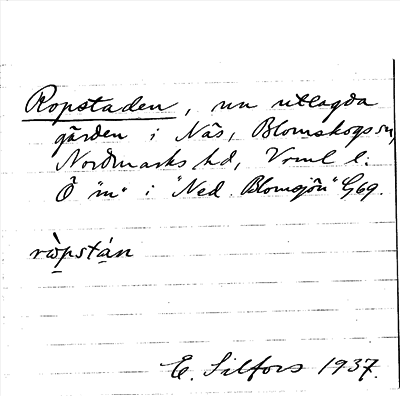 Ropstaden, nu utlagda
gården i Näs, Blomskogs sn,
Nordmarks hd, Vrml l.
Ö "m" i "Ned. Blomsjön" G69.
rὼpstán
E. Silfors 1937.